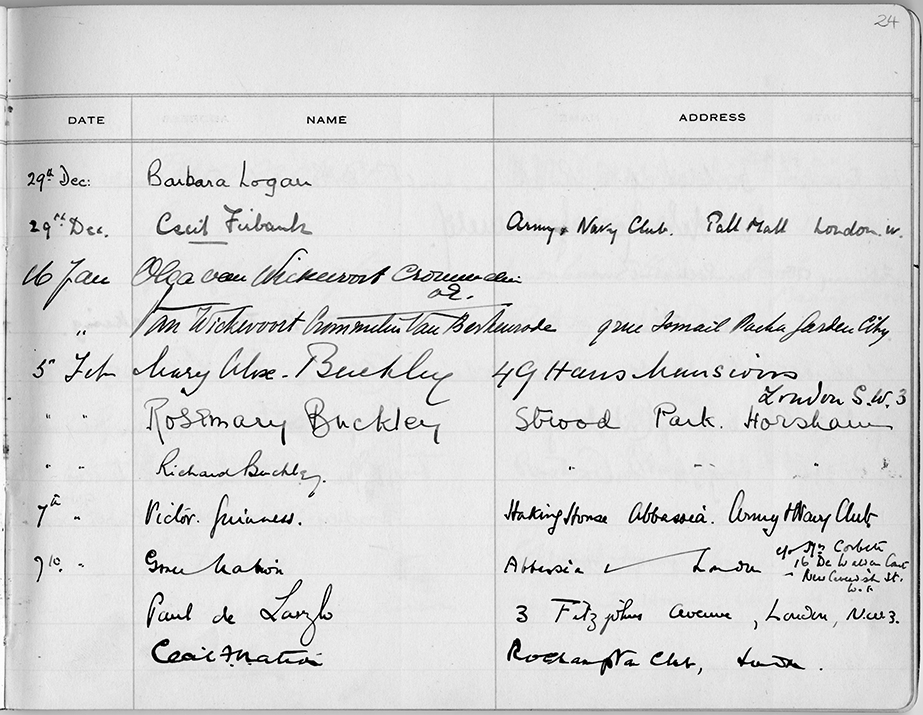 24
DATE NAME ADDRESS
29th Dec: Barbara Logan
29th Dec. Cecil Firbank Army & Navy Club. Pall Mall London. W.
16 Jan Olga van Wickevoort Crommelin
van Wickevoort Crommelin van Berkenrode 9 rue Ismail Pacha Garden City
5 Feb Mary Buckley 49 Hans Mansions
London S.W.3
" " Rosemary Buckley Strood Park. Horsham
" " Richard Buckley. " " " "
7th " Victor. Guinness. Haking House Abbassia. Army & Navy Club
9th. " Grace Nation Abbassia London c/o Mrs Corbett
16 De Walden Court
New Cavendish St.
W.1
Paul de Laszlo 3 Fitzjohns Avenue, London, N.W.3.
Cecil F. Nation Roehampton Club, London.